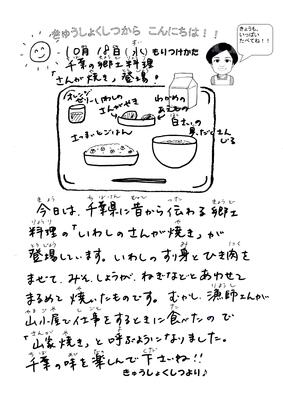 きゅうしょくしつから こんにちは！！
きょうも、
いっぱい
たべてね！！
10月18日(水) もりつけかた
千葉の郷土料理
「さんが焼き」登場！
オレンジ
ゼリー
いわしの
さんがやき
わかめの
あえもの
さつまいもごはん
白さいの
具だくさん
じる
今日は、千葉県に昔から伝わる郷土
料理の「いわしのさんが焼き」が
登場しています。いわしのすり身とひき肉を
まぜて、みそ、しょうが、ねぎなどとあわせて
まるめて焼いたものです。むかし、漁師さんが
山小屋で仕事をするときに食べたので
「山家焼き」と呼ぶようになりました。
千葉の味を楽しんで下さいね!!
きゅうしょくしつより♪